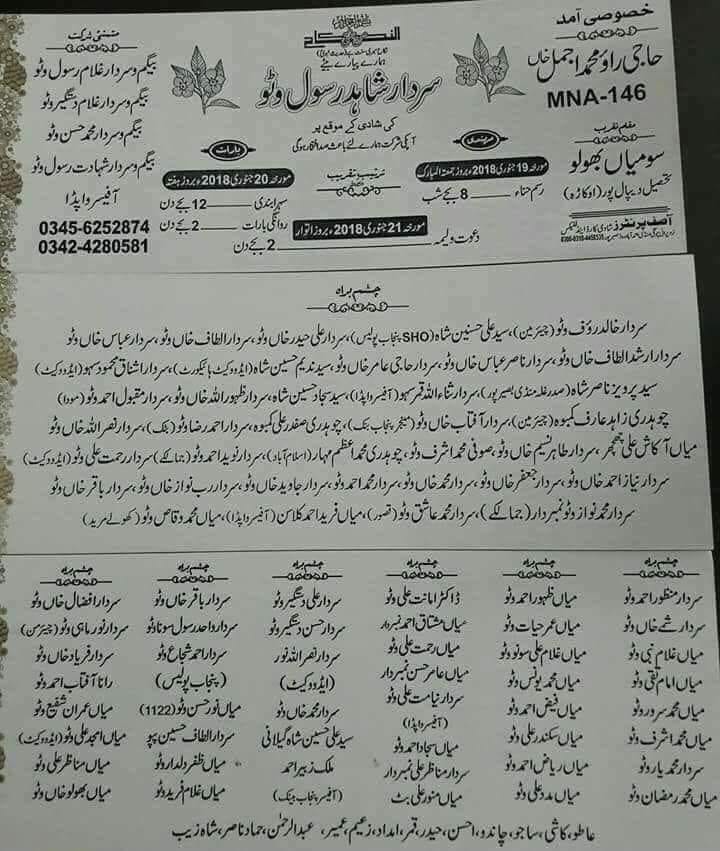 خصوصی آمد
حاجی راؤ محمد اجمل خاں
MNA-146
النکاح
ہمارے پیارے بیٹے
سردار شاہد رسول وٹو
کی شادی کے موقع پر
آپکی شرکت ہمارے لئے باعث صد افتخار ہوگی
متمنی شرکت
بیگم و سردار غلام رسول وٹو
بیگم و سردار غلام دستگیر وٹو
بیگم و سردار محمد حسن وٹو
بیگم و سردار شہادت رسول وٹو
آفیسر واپڈا
0345-6252874
0342-4280581
مقام تقریب
سومیاں بھولو
تحصیل دیپال پور (اوکاڑہ)
آصف پرنٹرز شادی کارڈ اینڈ فلیکس
ترتیب تقریب
مہندی
مورخہ 19 جنوری 2018ء بروز جمعۃ المبارک
رسم حناء 8 بجے شب
بارات
مورخہ 20 جنوری 2018ء بروز ہفتہ
سہرابندی 12 بجے دن
روانگی بارات 2 بجے دن
مورخہ 21 جنوری 2018ء بروز اتوار
دعوت ولیمہ 2 بجے دن
چشم براہ
سردار خالد رؤف وٹو (چیئرمین)، سید علی حسنین شاہ (SHO پنجاب پولیس)، سردار علی حیدر خاں وٹو، سردار الطاف خاں وٹو، سردار عباس خاں وٹو
سردار ارشد الطاف خاں وٹو، سردار ناصر عباس خاں وٹو، سردار حاجی عامر خاں وٹو، سید ندیم حسین شاہ (ایڈووکیٹ ہائیکورٹ)، سردار اشفاق محمود سہو (ایڈووکیٹ)
سید پرویز ناصر شاہ (صدر غلہ منڈی بصیرپور)، سردار ثناء اللہ قمر سہو (آفیسر واپڈا)، سید سجاد حسین شاہ، سردار ظہور اللہ خاں وٹو، سردار مقبول احمد وٹو (مودا)
چوہدری زاہد عارف کمبوہ (چیئرمین)، سردار آفتاب خاں وٹو (منیجر پنجاب بنک)، چوہدری صفدر علی کمبوہ، سردار احمد رضا وٹو (بنک)، سردار نصر اللہ خاں وٹو
میاں آکاش علی چھچھر، سردار طاہر نسیم خاں وٹو، صوفی محمد اشرف وٹو، چوہدری محمد اعظم مہار (اسلام آباد)، سردار نوید احمد وٹو (جمالکے)، سردار رحمت علی وٹو (ایڈووکیٹ)
سردار نیاز احمد خاں وٹو، سردار جعفر خاں وٹو، سردار محمد خاں وٹو، سردار محمد احمد وٹو، سردار جاوید خاں وٹو، سردار رب نواز خاں وٹو، سردار باقر خاں وٹو
سردار محمد نواز وٹو نمبردار (جمالکے)، سردار محمد عاشق وٹو (قصور)، میاں فرید احمد کلاسن (آفیسر واپڈا)، میاں محمد وقاص وٹو (کھولے مرید)
چشم براہ
سردار منظور احمد وٹو
سردار شے خاں وٹو
میاں غلام نبی وٹو
میاں امام تقی وٹو
میاں محمد سرور وٹو
میاں محمد اشرف وٹو
سردار محمد یار وٹو
میاں محمد رمضان وٹو
چشم براہ
میاں ظہور احمد وٹو
میاں عمر حیات وٹو
میاں غلام علی سونو وٹو
میاں محمد یونس وٹو
میاں فیض احمد وٹو
میاں سکندر علی وٹو
میاں ریاض احمد وٹو
میاں مدد علی وٹو
چشم براہ
ڈاکٹر امانت علی وٹو
میاں مشتاق احمد نمبردار
میاں رحمت علی وٹو
میاں عامر حسن نمبردار
سردار نیامت علی وٹو
(آفیسر واپڈا)
میاں سجاد احمد وٹو
سردار مناظر علی نمبردار
میاں منور علی بٹ
چشم براہ
سردار علی دستگیر وٹو
سردار حسن دستگیر وٹو
سردار نصر اللہ نور
(ایڈووکیٹ)
سردار محمد خاں وٹو
سید علی حسین شاہ گیلانی
ملک زبیر احمد
(آفیسر پنجاب بینک)
چشم براہ
سردار باقر خاں وٹو
سردار واحد رسول سونا وٹو
سردار احمد شجاع وٹو
(پنجاب پولیس)
میاں نور حسن وٹو (1122)
سردار الطاف حسین پپو
میاں ظفر دلدار وٹو
میاں غلام فرید وٹو
چشم براہ
سردار افضال خاں وٹو
سردار نور ماہی وٹو (چیئرمین)
سردار فریاد خاں وٹو
رانا آفتاب احمد وٹو
میاں عمران شفیع وٹو
میاں امجد علی وٹو (ایڈووکیٹ)
میاں مناظر علی وٹو
میاں بھولو خاں وٹو
عاطو، کاشی، ساجو، چاندو، احسن، حیدر، قمر، امداد، زعیم، عمیر، عبدالرحمٰن، حماد ناصر، شاہ زیب